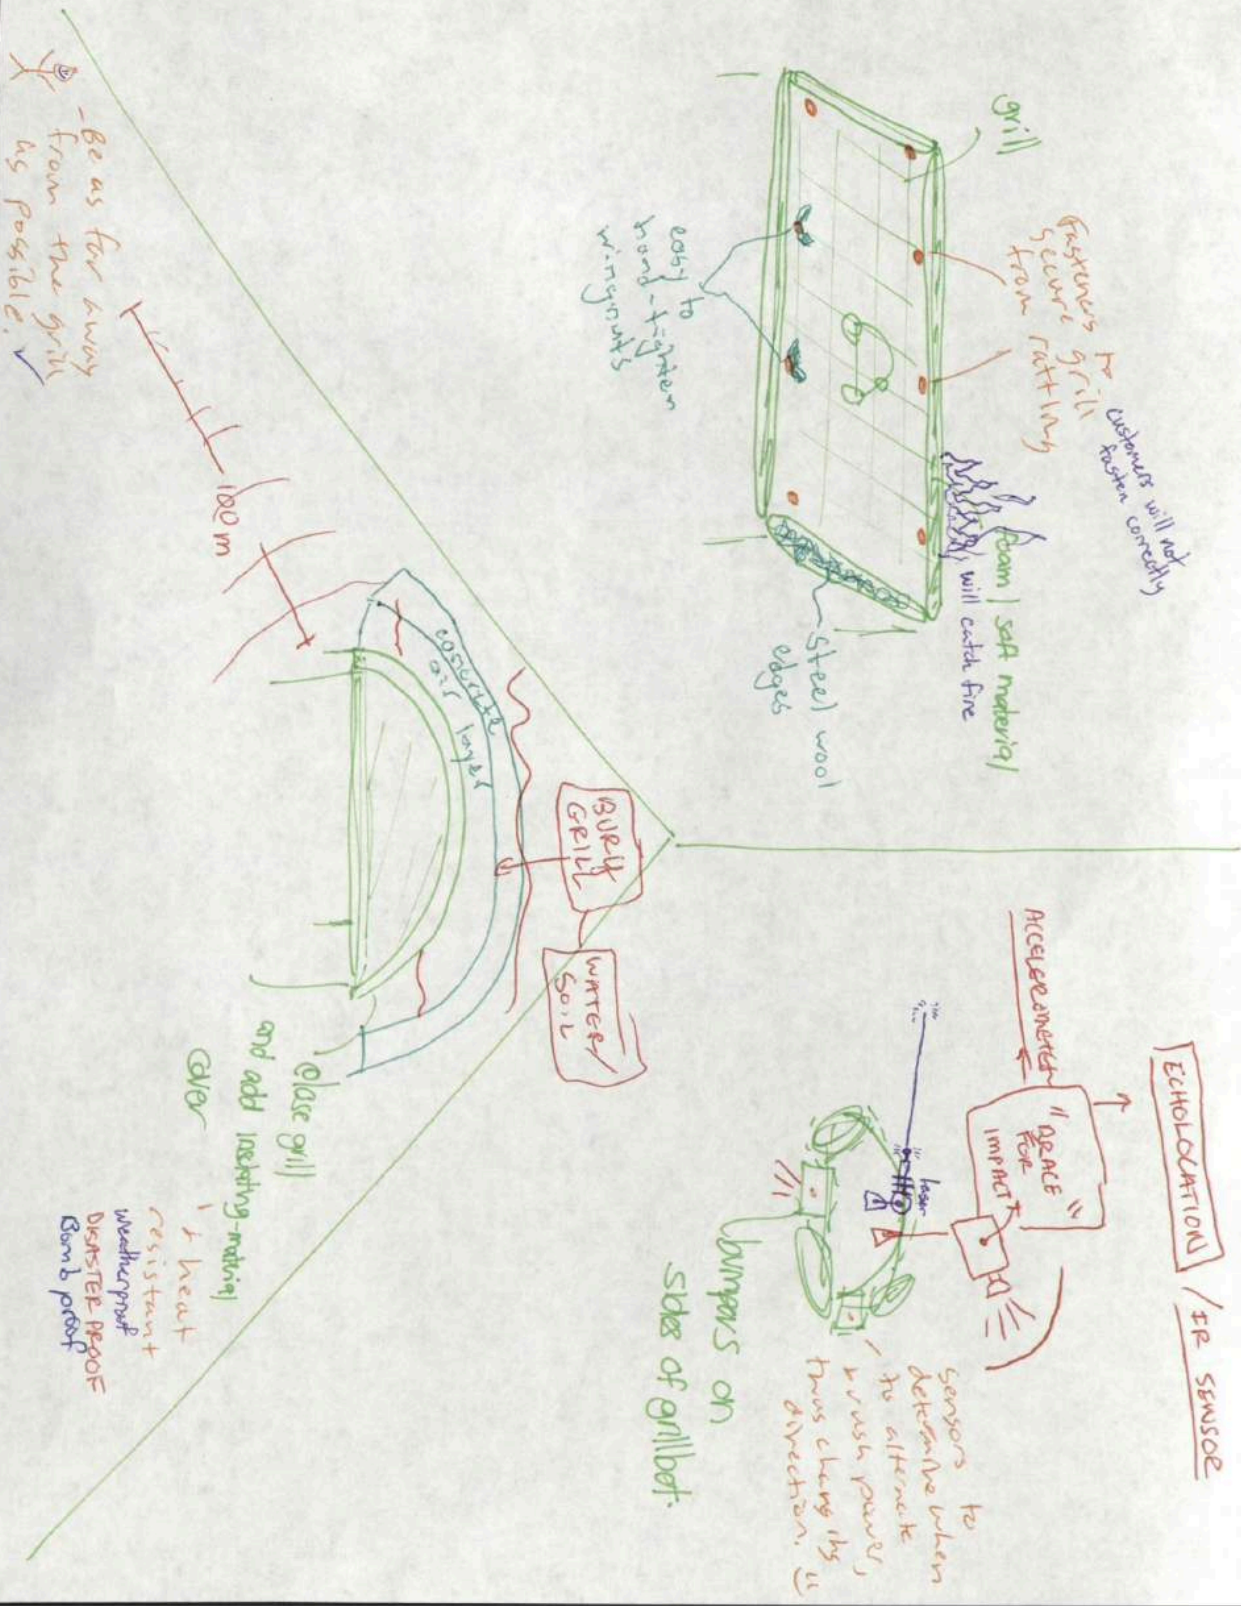 grill
Fasteners to
secure grill
from rattling
customers will not
fasten correctly
foam / soft material
will catch fire
easy to
hand-tighten
wingnuts
steel wool
edges
ECHOLOCATION / IR SENSOR
ACCELEROMETER
"BRACE
FOR
IMPACT"
laser
sensors to
determine when
to alternate
brush power,
thus changing
direction.
bumpers on
sides of grillbot.
BURY
GRILL
WATER/
SOIL
concrete
air layer
100m
- Be as far away
from the grill
as possible. ✓
close grill
and add insulating-material
cover
+ heat
resistant
weatherproof
DISASTER PROOF
Bomb proof